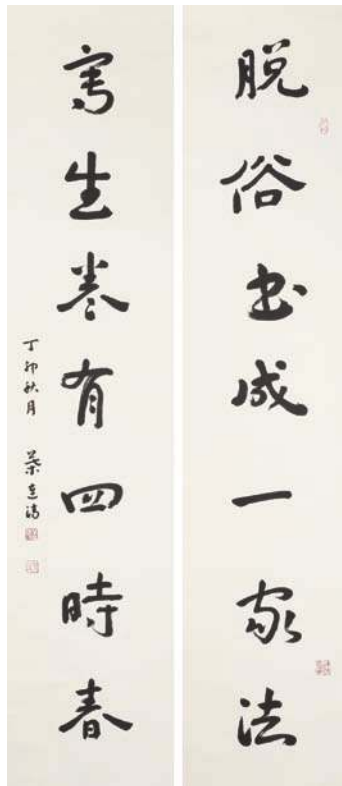 脱俗书成一家法
写生卷有四時春
丁卯秋月 梁